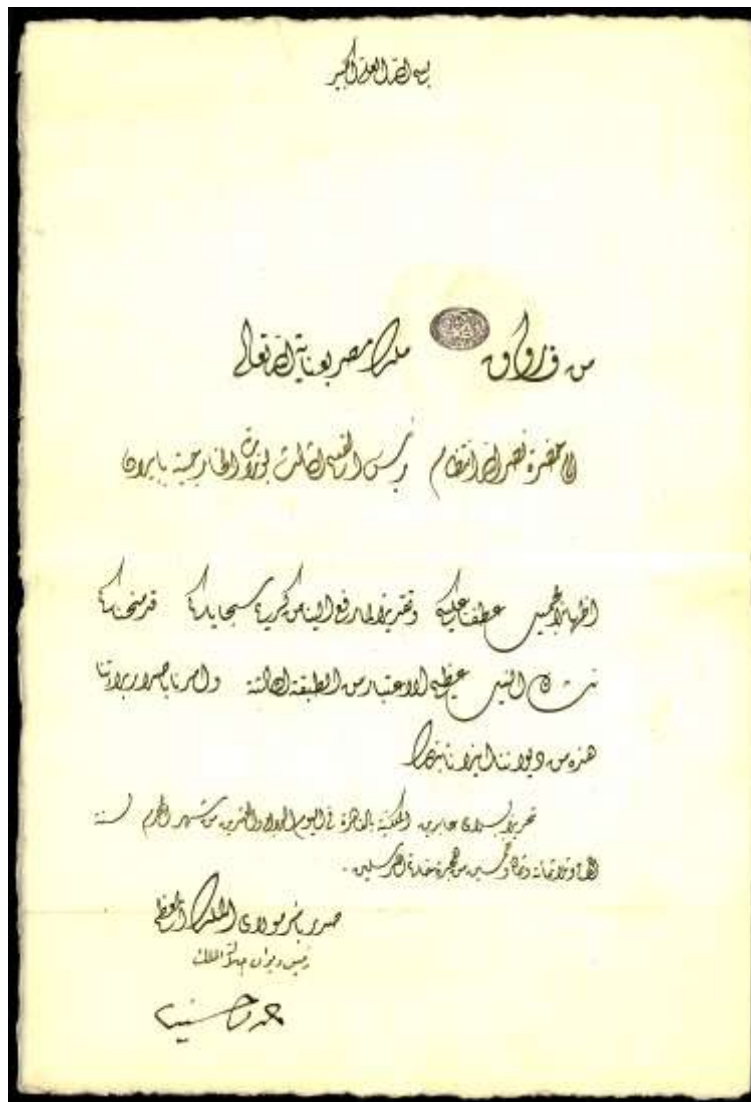 بسم الله العلي الكبير
من فاروق ملك مصر بعناية الله تعالى
إلى حضرة نصر الله انتظام رئيس القسم الثالث بوزارة الخارجية بإيران
إظهارا لجميل عطفنا عليكم وتقديرا لما رفع إلينا من كريم سجاياكم قد منحناكم
نشان النيل عظيم الاعتبار من الطبقة الثالثة وأمرنا بإصدار براءتنا
هذه من ديواننا إيذانا بذلك
تحريرا بسراي عابدين الملكية بالقاهرة في اليوم والعشرين من شهر المحرم سنة
ألف وثلاثمائة وثمان وخمسين من هجرة خاتم المرسلين.
صدر بأمر مولاي الملك المعظم
رئيس ديوان جلالة الملك